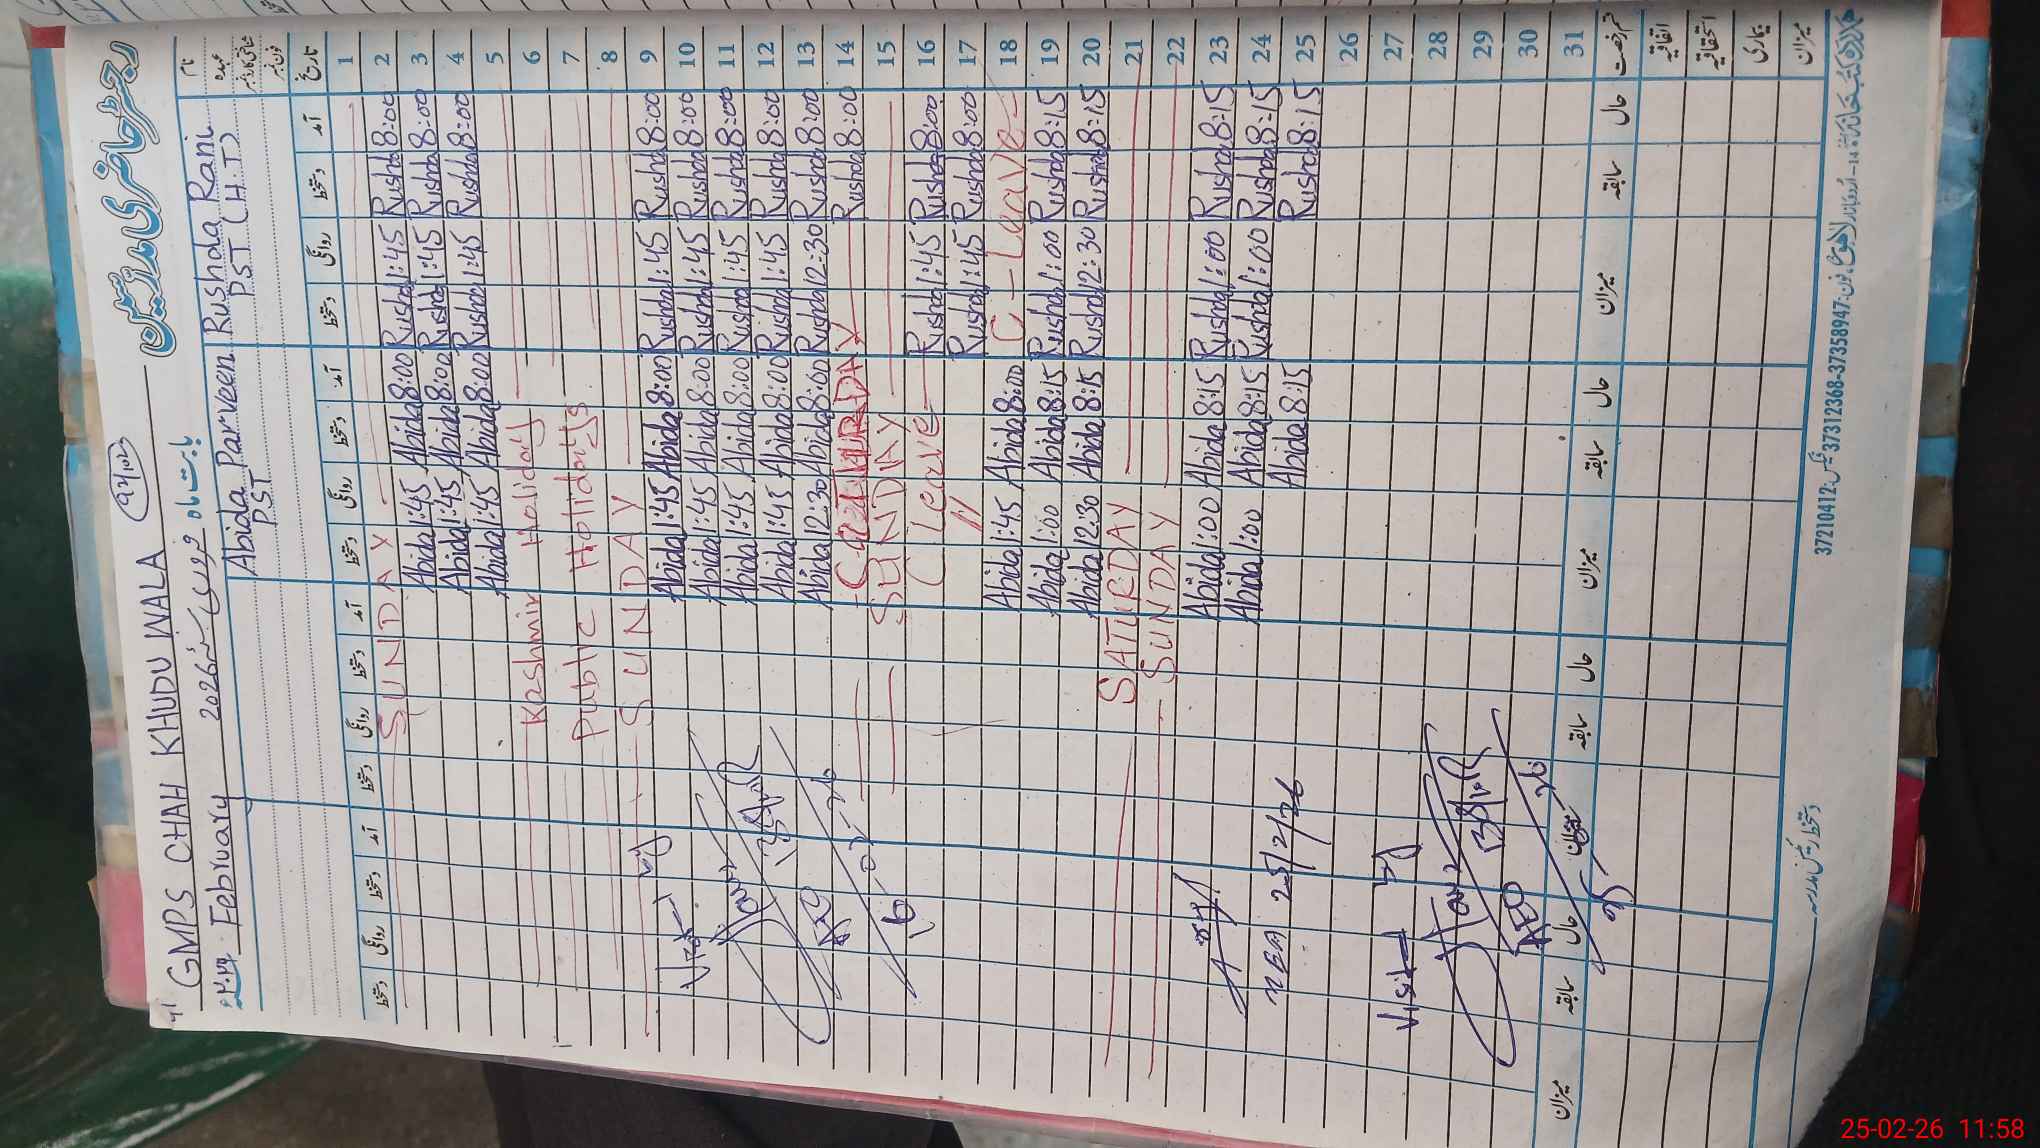 رجسٹر حاضری مدرسین
GMPS CHAH KHUDU WALA
February 2026 بابت ماہ فروری سنہ
نام
Abida Parveen Rushda Rani
عہدہ
PST PST (H.T)
تاریخ
آمد دستخط روانگی دستخط آمد دستخط روانگی دستخط آمد دستخط روانگی دستخط آمد دستخط روانگی دستخط
SUNDAY 1
Abida 1:45 Abida 8:00 Rushda 1:45 Rushda 8:00 2
Abida 1:45 Abida 8:00 Rushda 1:45 Rushda 8:00 3
Abida 1:45 Abida 8:00 Rushda 1:45 Rushda 8:00 4
Kashmir Holiday 5
Public Holidays 6
7
SUNDAY 8
Abida 1:45 Abida 8:00 Rushda 1:45 Rushda 8:00 9
Abida 1:45 Abida 8:00 Rushda 1:45 Rushda 8:00 10
Abida 1:45 Abida 8:00 Rushda 1:45 Rushda 8:00 11
Abida 1:45 Abida 8:00 Rushda 1:45 Rushda 8:00 12
Abida 12:30 Abida 8:00 Rushda 12:30 Rushda 8:00 13
Rushda 8:00 14
SUNDAY 15
C Leave Rushda 1:45 Rushda 8:00 16
" Rushda 1:45 Rushda 8:00 17
Abida 1:45 Abida 8:00 C-Leave 18
Abida 1:00 Abida 8:15 Rushda 1:00 Rushda 8:15 19
Abida 12:30 Abida 8:15 Rushda 12:30 Rushda 8:15 20
SATURDAY 21
SUNDAY 22
Abida 1:00 Abida 8:15 Rushda 1:00 Rushda 8:15 23
Abida 1:00 Abida 8:15 Rushda 1:00 Rushda 8:15 24
Abida 8:15 Rushda 8:15 25
26
27
28
29
30
31
Visit by
AEO
16-02-26
MEA 25/2/26
Visited by
AEO
قسم رخصت حال سابقہ میزان حال سابقہ میزان حال سابقہ میزان حال سابقہ میزان
اتفاقیہ
استحقاقیہ
بیماری
میزان
37210412 فیکس: 37312368-37358947
25-02-26 11:58